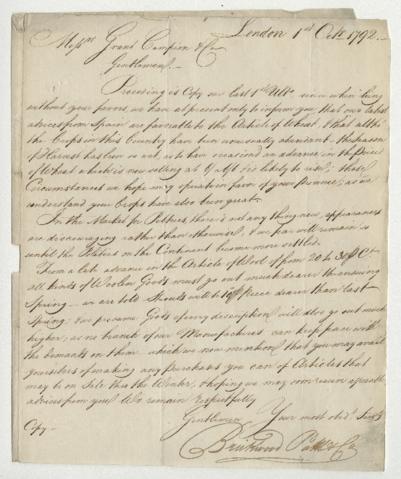 London 1st Octr 1792
Messrs Grant Campion & Co
Gentlemen
Preceding is Copy our last 1st Ulto since when being
without your favors, we have at present only to inform you that our latest
advices from Spain are favorable to the Article of Wheat, & that altho
the Crops in this Country have been unusually abundant, the
of Harvest has been so wet, as to have occasioned an advance in the Price
of Wheat which is now selling at & likely to rise; these
Circumstances we hope may operate in favor of your Province, as we
understand your Crops have also been great.
In the Market for Peltries there is not any thing new, appearances
are discouraging rather than otherwise, & we fear will remain so
until the States on the Continent become more settled.
From a late advance in the Article of Wool of from 20 to 30 P Ct
all kinds of Woolen Goods must go out much dearer the ensuing
Spring — we are told Strouds will be Piece dearer than last
Spring, & we presume Goods of every description will also go out much
higher, as no branch of our Manufactures can keep pace with
the demands on them which we now mention that you may avail
yourselves of making any purchases you can of Articles that
may be on Sale this Winter, & hoping we may soon receive agreeable
advices from you We remain respectfully
Gentlemen Your most obedt Servts
Copy — Brickwood Pattle & Co